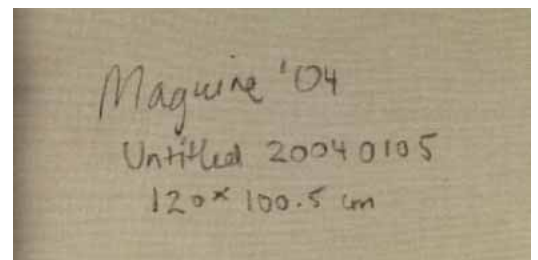 Maguire '04
Untitled 20040105
120 x 100.5 cm